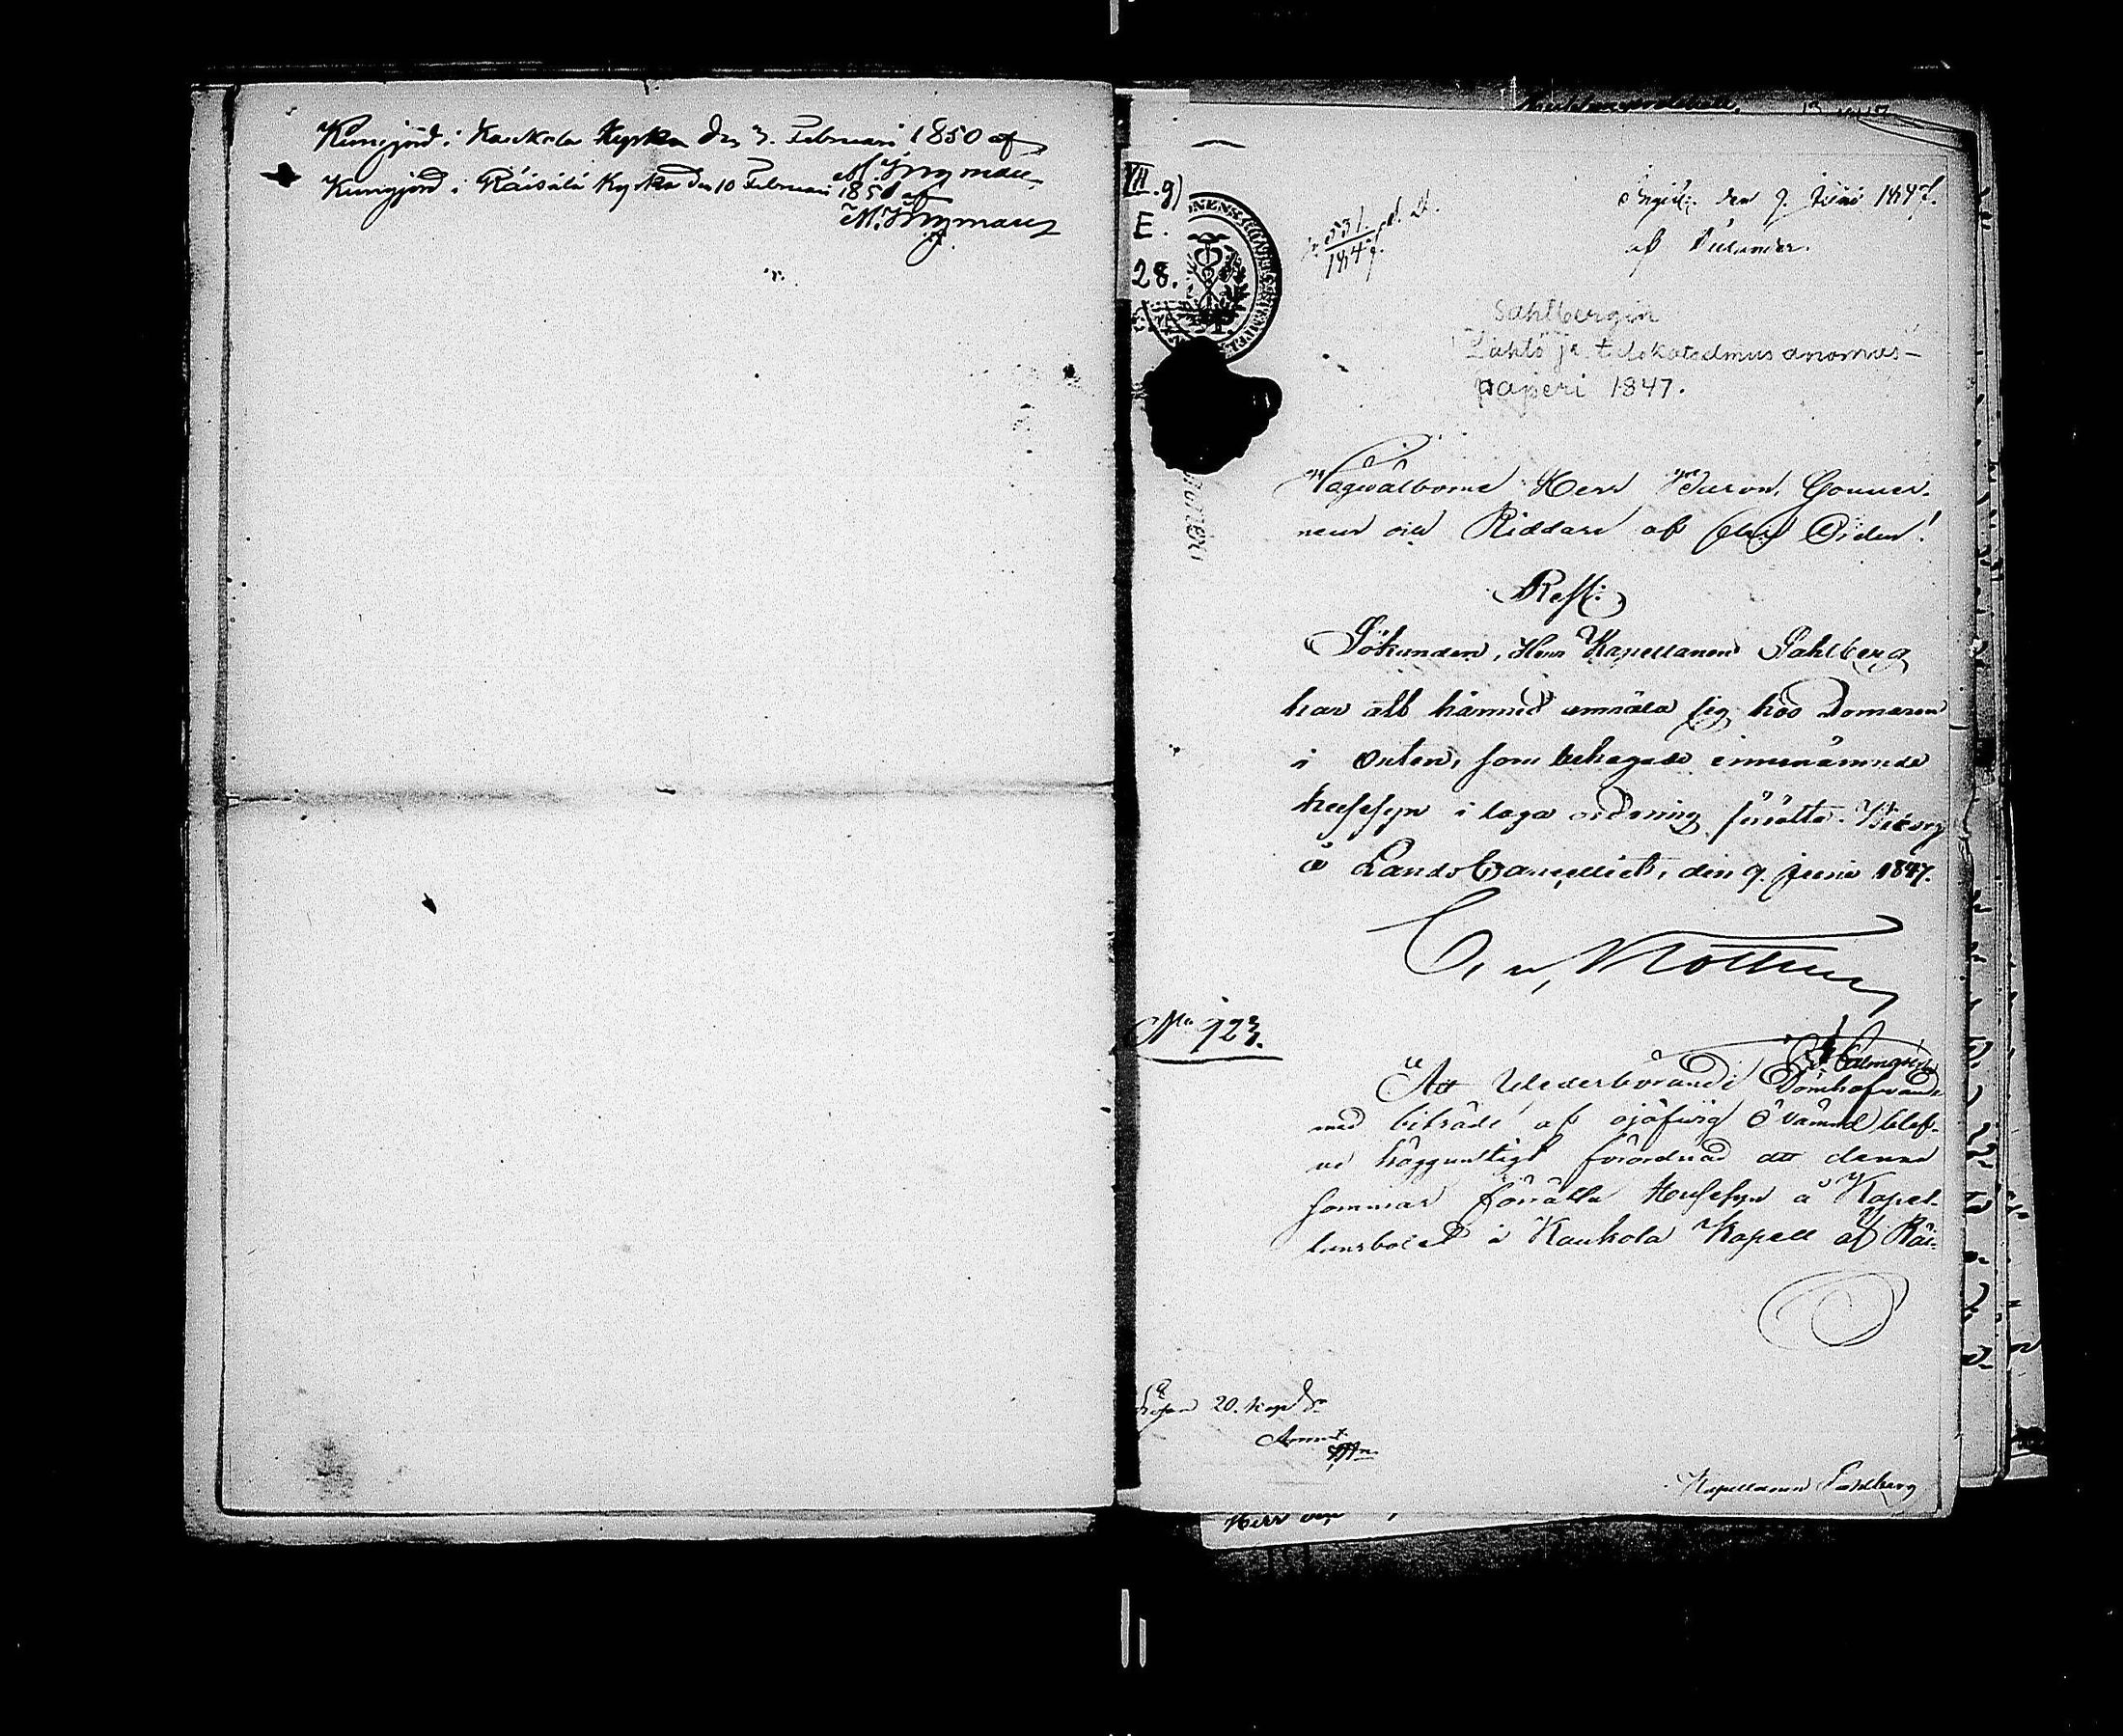 Kungjord i Kaukola Kyrka den 3. Februari 1850 af
M. Jnnman
Kungjord i Räisälä Kyrka den 10 Februari 1850 af
VII.g)
E.
28.
Ingif. den 9. Junii 1847.
af
331
1847.
Sahlbergin
Lähtö ja talokatselmus anomus-
paperi 1847.
Högvälborne Herr Baron, Gouver-
neur och Riddare af flere Orden!
Res:
Sökanden, Herr Kapellanen Sahlberg
har att härmed anmäla sig hos Domaren
i Orten, som behagade innenämnde
hussyn i laga ordning förrätta. Wiborg
å Landscancelliet, den 9. Junii 1847.
C. v. Kothen
No 923.
Att Wederbörande Domhafvande
med biträde af ojäfvig Ö nämnd blef-
ve höggunstigt förordnad att denna
sommar förrätta Hussyn å Kapel-
lansbolet i Kaukola Kapell af Räi-
Lösen 20. kop Sr
Kapellanen Sahlberg
Herr